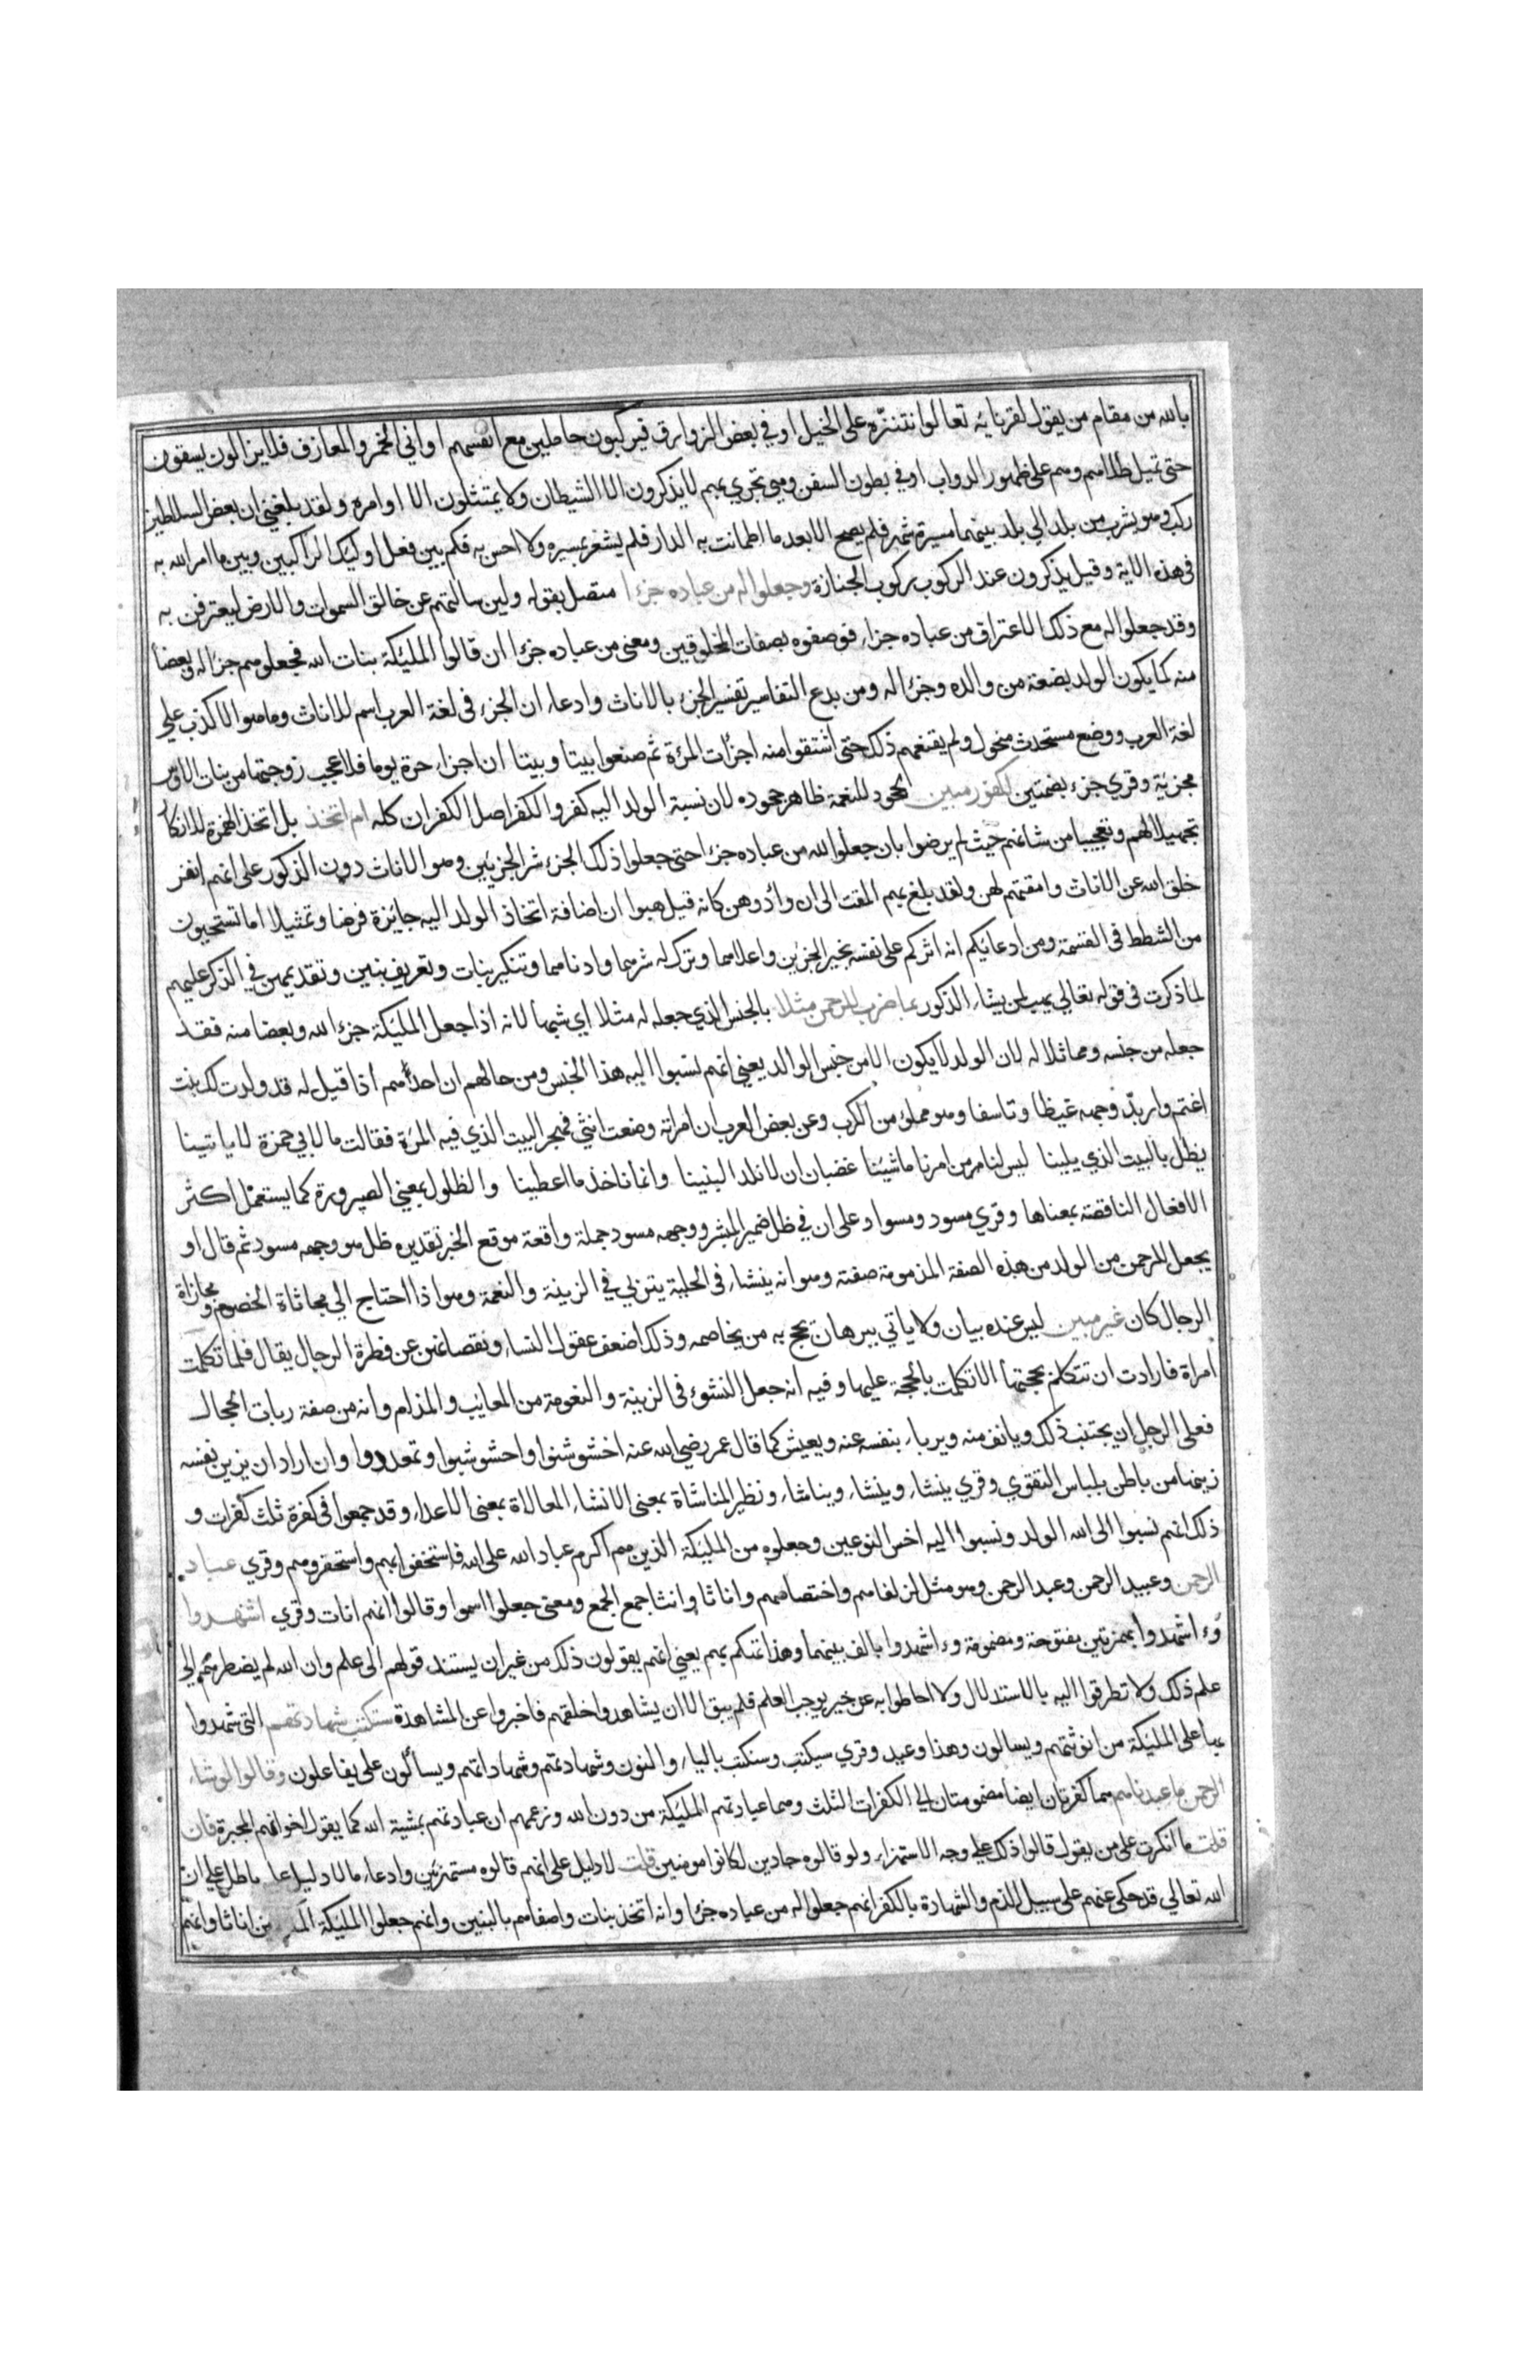 بالله من مقام من يقول لقرنايه تعالوا نتنزه على الخيل او في بعض الزوارق فيركبون حاملين مع انفسهم اواني الخمر والمعازف فلا يزالون يسقون
حتى تميل طلاهم وهم على ظهور الدواب او في بطون السفن وهي تجري بهم لا يذكرون الا الشيطان ولا يمتثلون الا اوامره ولقد بلغني ان بعض السلاطين
ركب وهو يشرب من بلد الي بلد بينهما مسيرة شهر فلم يصح الا بعد ما اطمانت به الدار فلم يشعر بمسيره ولا احس به فكم بين فعل اوليك الراكبين وبين ما امر الله به
في هذه الاية وقيل يذكرون عند الركوب ركوب الجنازة وجعلوا له من عباده جزءا متصل بقوله ولين سالتهم عن خالق السموات والارض ليعترفن به
وقد جعلوا له مع ذلك الاعتراف من عباده جزا فوصفوه بصفات المخلوقين ومعنى من عباده جزءا ان قالوا المليكة بنات الله فجعلوهم جزا له وبعضا
منه كما يكون الولد بضعة من والده وجزءا له ومن بدع التفاسير تفسير الجزء بالاناث وادعاء ان الجزء في لغة العرب اسم للاناث وما هو الا كذب علي
لغة العرب ووضع مستحدث منحول ولم يقنعهم ذلك حتى اشتقوا منه اجزات المراة ثم صنعوا بيتا وبيتا ان اجزات حرة يوما فلا عجب زوجتها من بنات الاوس
مجزية وقري جزء بضمتين لكفور مبين لجحود للنعمة ظاهر جحوده لان نسبة الولد اليه كفر والكفر اصل الكفران كله ام اتخذ بل اتخذ الهمزة للانكار
تجهيلا لهم وتعجيبا من شانهم حيث لم يرضوا بان جعلوا لله من عباده جزءا حتى جعلوا ذلك الجزء شر الجزئين وهو الاناث دون الذكور على انهم انفر
خلق الله عن الاناث وامقتهم لهن ولقد بلغ بهم المقت الى ان وادوهن كانه قيل هبوا ان اضافة اتخاذ الولد اليه جايزة فرضا وتمثيلا اما تستحيون
من الشطط في القسمة ومن ادعايكم انه اثركم على نفسه بخير الجزئين واعلاهما وترك له شرهما وادناهما وتنكير بنات وتعريف بنين وتقديمهن في الذكر عليهم
لما ذكرت في قوله تعالي يهب لمن يشاء الذكور بما ضرب للرحمن مثلا بالجنس الذي جعله له مثلا اي شبها لانه اذا جعل المليكة جزءا لله وبعضا منه فقد
جعله من جنسه ومماثلا له لان الولد لا يكون الا من جنس الوالد يعني انهم نسبوا اليه هذا الجنس ومن حالهم ان احدهم اذا قيل له قد ولدت لك بنت
اغتم واربد وجهه غيظا وتاسفا وهو مملؤ من الكرب وعن بعض العرب ان امراته وضعت انثي فهجر البيت الذي فيه المراة فقالت ما لابي حمزة لا ياتينا
يظل بالبيت الذي يلينا ليس لنا من امرنا ما شينا غضبان ان لا نلد البنينا وانما ناخذ ما اعطينا والظلول بمعني الصيرورة كما يستعمل اكثر
الافعال الناقصة بمعناها وقري مسود ومسواد على ان في ظل ضمير المبشر ووجهه مسود جملة واقعة موقع الخبر تقديره ظل هو وجهه مسود ثم قال او
يجعل للرحمن من الولد من هذه الصفة المذمومة صفته وهو انه ينشاء في الحلية يتربي في الزينة والنعمة وهو اذا احتاج الي مجاثاة الخصوم ومجازاة
الرجال كان غير مبين ليس عنده بيان ولا ياتي ببرهان يحج به من يخاصمه وذلك لضعف عقول النساء ونقصانهن عن فطرة الرجال يقال فلما تكلمت
امراة فارادت ان تتكلم بحجتها الا تكلمت بالحجة عليها وفيه انه جعل النشوء في الزينة والنعومة من المعايب والمذام وانه من صفة ربات الحجال
فعلى الرجل ان يجتنب ذلك ويانف منه ويربا بنفسه عنه ويعيش كما قال عمر رضي الله عنه اخشوشنوا واخشوشبوا وتمعددوا وان اراد ان يزين نفسه
زينها من باطن بلباس التقوي وقري ينشاء وينشاء ويناشاء ونظير المناشاة بمعنى الانشاء المغالاة بمعنى الاغلاء وقد جمعوا في كفرة ثلث كفرات و
ذلك انهم نسبوا الى الله الولد ونسبوا اليه اخس النوعين وجعلوه من المليكة الذين هم اكرم عباد الله على الله فاستخفوا بهم واستحقروهم وقري عباد
الرحمن وعبيد الرحمن وعبد الرحمن وهو مثل لزلفاهم واختصاصهم واناثا وانثا جمع الجمع ومعنى جعلوا سموا وقالوا انهم اناث وقري اشهدوا
وءاشهدوا بهمزتين مفتوحة ومضمومة وءاشهدوا بالف بينهما وهذا تهكم بهم يعني انهم يقولون ذلك من غير ان يستند قولهم الى علم وان الله لم يضطرهم الي
علم ذلك ولا تطرقوا اليه بالاستدلال ولا احاطوا به عن خبر يوجب العلم فلم يبق الا ان يشاهدوا خلقهم فاخبروا عن المشاهدة ستكتب شهادتهم التي شهدوا
بها على المليكة من انوثتهم ويسالون وهذا وعيد وقري سيكتب وسنكتب بالياء والنون وشهادتهم وشهاداتهم ويساءلون على يفاعلون وقالوا لو شاء
الرحمن ما عبدناهم هما كفرتان ايضا مضمومتان الي الكفرات الثلث وهما عبادتهم المليكة من دون الله وزعمهم ان عبادتهم بمشية الله كما يقول اخوانهم المجبرة فان
قلت ما انكرت على من يقول قالوا ذلك علي وجه الاستهزاء ولو قالوه جادين لكانوا مومنين قلت لا دليل على انهم قالوه مستهزئين وادعاء ما لا دليل عليه باطل علي ان
الله تعالي قد حكى عنهم على سبيل الذم والشهادة بالكفر انهم جعلوا له من عباده جزءا وانه اتخذ بنات واصفاهم بالبنين وانهم جعلوا المليكة اناثا وانهم